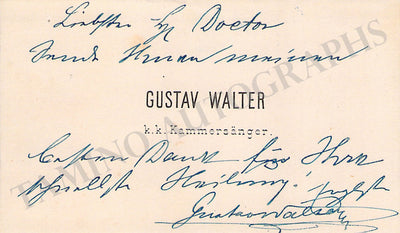 Liebster Hr Doctor
Sende Ihnen meinen
GUSTAV WALTER
k.k. Kammersänger.
besten Dank für Ihre
schnellste Heilung!
Gustav Walter
TAMINO AUTOGRAPHS